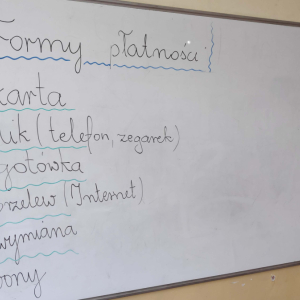 Formy płatności
karta
lik (telefon, zegarek)
gotówka
przelew (Internet)
wymiana
bony